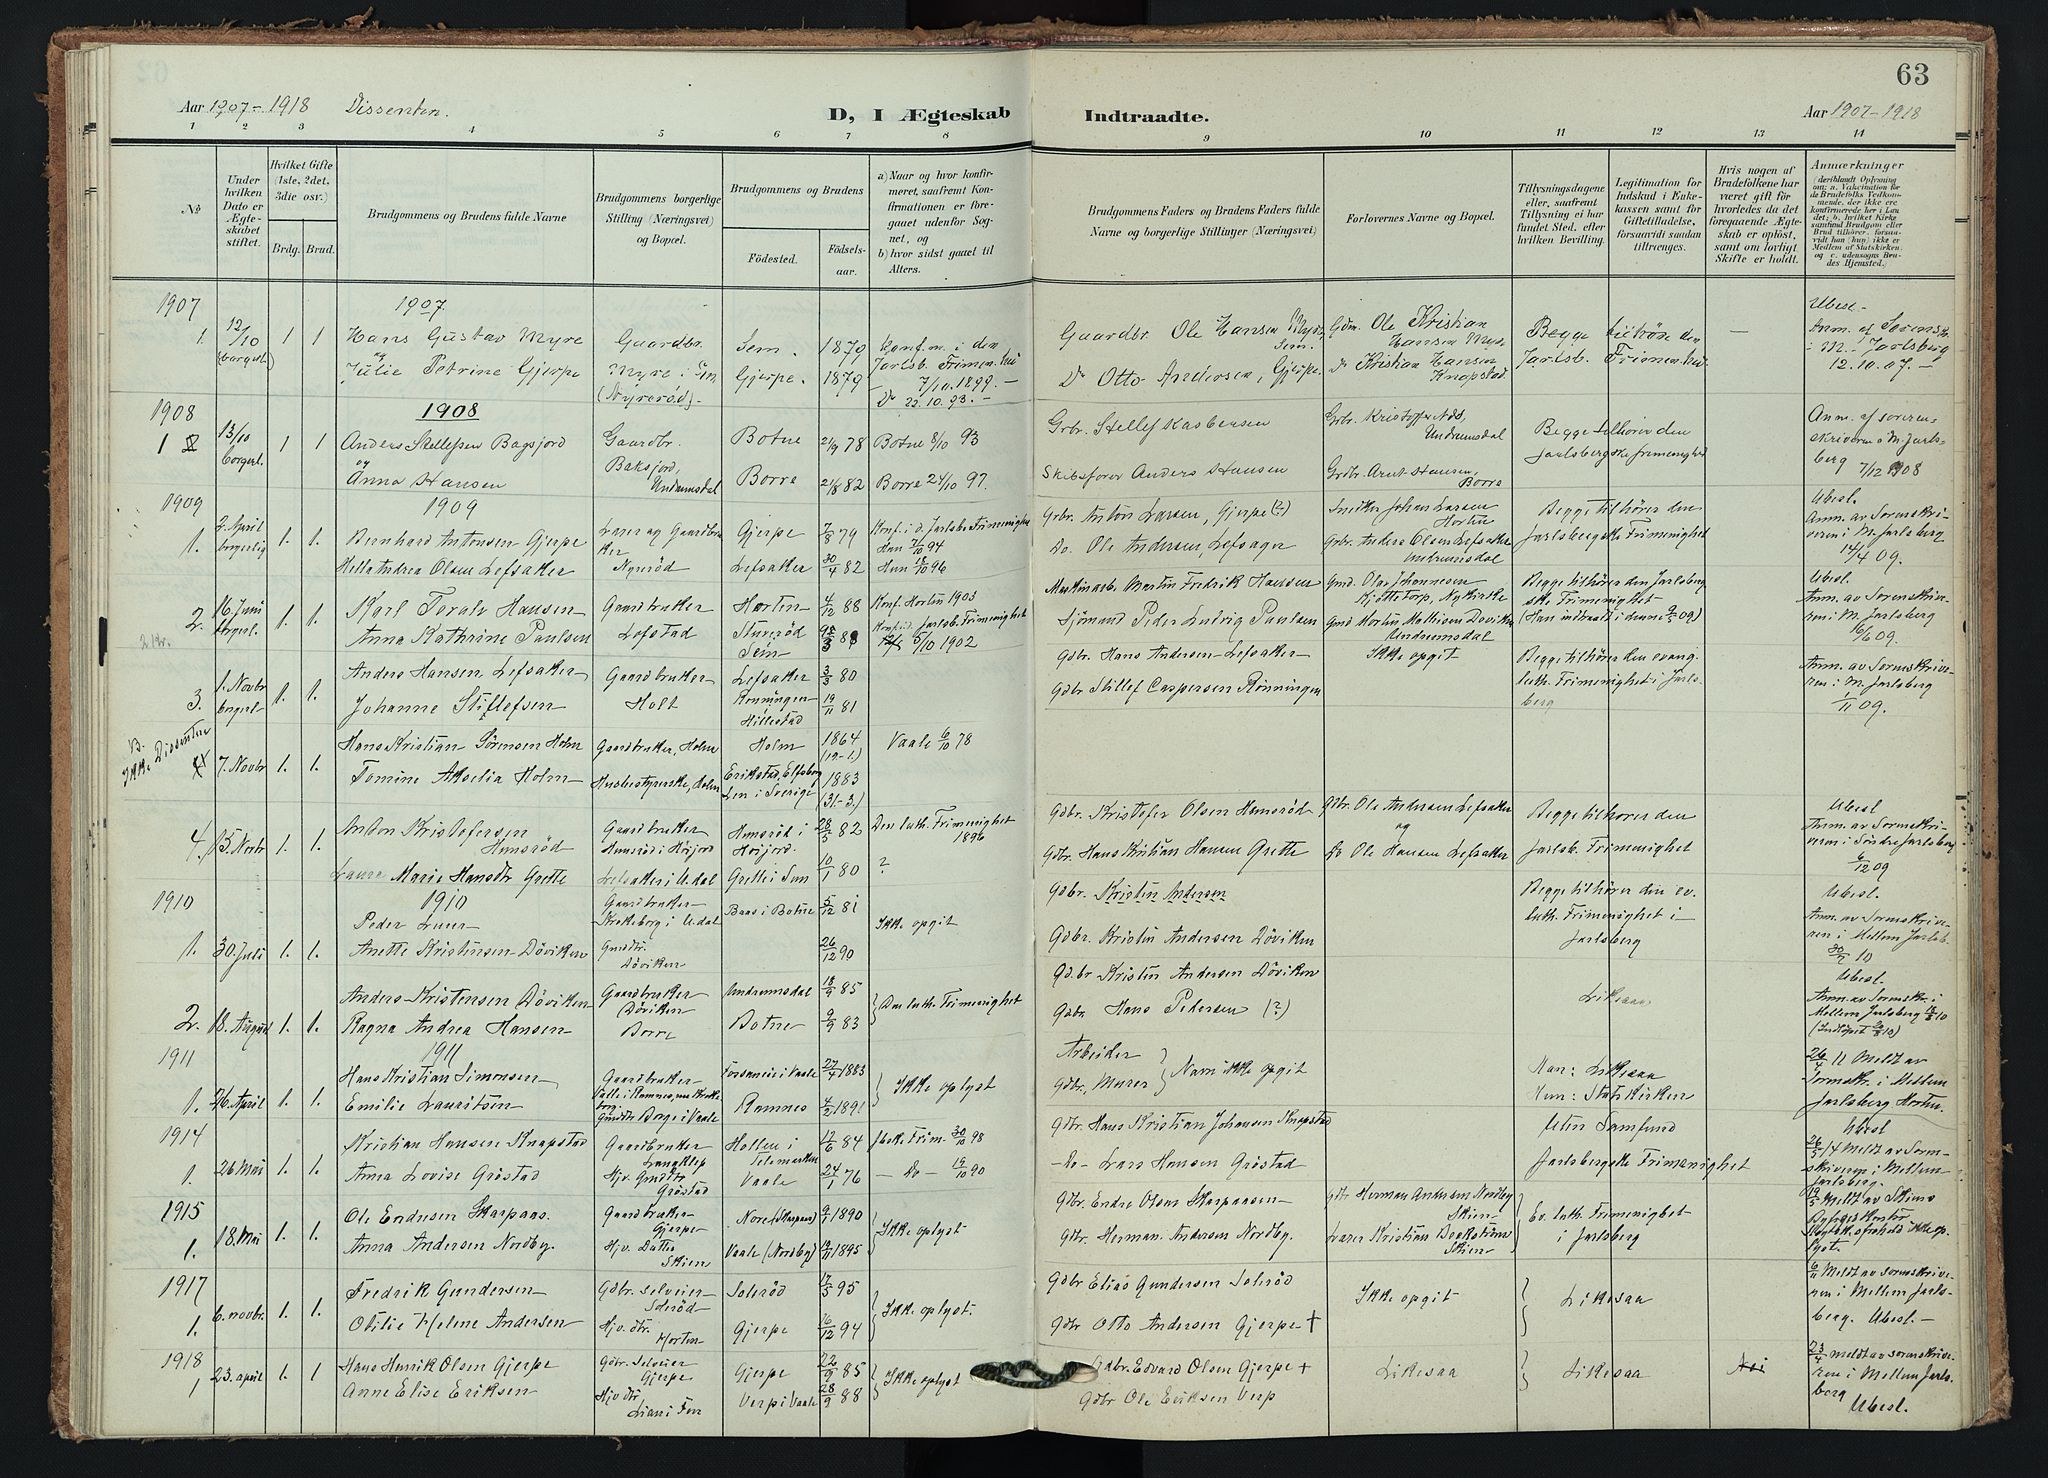 63
Aar 1907-1918 Dissenter.
D, I Ægteskab
Indtraadte.
Aar 1907-1918
1 2 3 4 5 6 7 8 9 10 11 12 13 14
No
Under hvilken Dato er Ægteskabet stiftet.
Hvilket Gifte (1ste, 2det, 3die osv.)
Brdg. Brud.
Brudgommens og Brudens fulde Navne
Brudgommens borgerlige Stilling (Næringsvei) og Bopæl.
Brudgommens og Brudens
Fødested.
Fødselsaar.
a) Naar og hvor konfirmeret, saafremt Konfirmationen er foregaaet udenfor Sognet, og
b) hvor sidst gaaet til Alters.
Brudgommens Faders og Brudens Faders fulde Navne og borgerlige Stillinger (Næringsvei)
Forlovernes Navne og Bopæl.
Tillysningsdagene eller, saafremt Tillysning ei har fundet Sted, efter hvilken Bevilling.
Legitimation for Indskud i Enkekassen samt for Giftetilladelse, forsaavidt saadan tiltrænges.
Hvis nogen af Brudefolkene har været gift før hvorledes da det foregaaende Ægteskab er opløst, samt om lovligt Skifte er holdt.
Anmærkninger
(deriblandt Oplysning om: a. Vakcination for de Brudefolks Vedkommende, der ikke ere konfirmerede her i Landet; b. hvilket Kirkesamfund Brudgom eller Brud tilhører, forsaavidt han (hun) ikke er Medlem af Statskirken, og c. udensogns Brudes Hjemsted.)
1907
1907
1. 12/10 (borgerl.) 1 1 Hans Gustav Myre Gaardbr. Sem. 1879 konf. m. i den Gaardbr. Ole Hansen Myre, Sem. Gdm. Ole Kristian Hansen Myre Begge tilhøre den — Ubesl.- Anm. af Sorensk. i M. Jarlsberg 12.10.07.-
og Julie Petrine Gjerpe Myre i Sem (Nyrerød).- Gjerpe. 1879 Jarlsb. Frimenighed 7/10.1899.- Do 22.10.93.- Do Otto Andersen, Gjerpe. Do Kristian Hansen Knapstad. Jarlsb. Frimenighed
1908
1908
1 13/10 borgerl. 1 1 Anders Stellefsen Bagsjord Gaardbr. Botne 21/9 78 Botne 8/10 93 Grbr. Stellef Kasbersen Grbr. Kristoffer Nds, Undrumsdal Begge tilhører den Anm. af sorenskriveren i M. Jarlsberg 7/12 1908
og Anna Hansen Baksjord, Undrumsdal Borre 21/8 82 Borre 24/10 97. Skibsfører Anders Hansen Grdbr. Arnt Hansen, Borre Jarlsbergske frimenighet
1909
1909
1. 2. April borgerlig 1. 1. Bernhard Antonsen Gjerpe Lærer og Gaardbruker Gjerpe 7/8 79 Konf. i d. Jarlsbs Frimenighet Han 7/10 94 Grbr. Anton Larsen, Gjerpe (?) Snedker Johan Larsen Horten Begge tilhører den Ubesl. Anm. av Sorenskriveren i M. Jarlsberg 14/4 09.
Hella Andrea Olsen Lefsaker Nyrerød Lefsaker 30/4 82 Hun 18/10 96 Do. Ole Andersen Lefsager Grbr. Anders Olsen Lefsaker Undrumsdal Jarlsbergske Frimenighet
2. 16 Juni borgerl. 1. 1. Karl Toralv Hansen Gaardbruker Horten 4/12 88 Konf. Horten 1903 Maskinarb. Martin Fredrik Hansen Gmd. Olav Johannesen Kjøttetorp, Nykirke Begge tilhører den Jarlsbergske Frimenighet Ubesl. Anm. av Sorenskriveren i M. Jarlsberg 16/6 09.
Anna Kathrine Paulsen Lofstad Sturerød Sem Konf. i d. Jarlsb. Frimenighet 5/10 1902 Sjømand Peder Ludvig Paulsen Gmd Morten Mathisen Døviken Undrumsdal (Han indtraadt i denne 09)
2 kr.
3. 1. Novbr borgerl. 1. 1. Anders Hansen Lefsaker Gaardbruker Lefsaker 3/3 80 Gdbr. Hans Andersen Lefsaker Ikke opgit Begge tilhører den evang. luth. Frimenighet i Jarlsberg Anm. av Sorenskriveren i M. Jarlsberg 1/11 09.
Johanne Stillefsen Holt Rønningen Hillestad 19/11 81 Gdbr Stillef Caspersen Rønningen
Ikke Dissentere
7. Novbr 1. 1. Hans Kristian Sørensen Holm Gaardbruker, Holm Holm 1864 (19-1.) Vaale 6/10 78
Tomine Akselia Holm Husbestyrerske, Holm Erikstad, Elfsborg Len i Sverige 1883 (31-3.)
4. 15. Novbr 1. 1. Anton Kristofersen Hemsrød Gaardbruker Hemsrød i Høijord Hemsrød i Høijord. 28/5 82 Den luth. Frimenighet 1896 Gdbr. Kristofer Olsen Hemsrød Gdbr. Ole Andersen Lefsaker og Begge tilhører den Ubesl Anm. av Sorenskriveren i Søndre Jarlsberg 6/12 09
Laura Marie Hansdtr Grette Lefsaker i U.dal Grette i Sem 10/1 80 ? Gdbr. Hans Kristian Hansen Grette Do Ole Hansen Lefsaker Jarlsb. Frimenighet
1910
1910
1. 30. Juli 1. 1. Peder Luur Gaardbruker Krakeborg i U.dal Baas i Botne 5/12 81 Ikke opgit Gdbr. Kristen Andersen Begge tilhører den ev. luth. Frimenighet i Jarlsberg Ubesl. Anm. av Sorenskriveren i Mellem Jarlsb. 30/7 10
Anette Kristensen Døviken Gmdtr. Døviken 26/12 90 Gdbr. Kristen Andersen Døviken
2. 18. August 1. 1. Anders Kristensen Døviken Gaardbruker Døviken Undrumsdal 18/9 85 Den luth. Frimenighet Gdbr Kristen Andersen Døviken Likesaa Ubesl. Anm. av Sorenskr. i Mellem Jarlsberg 18/8 10
Ragna Andrea Hansen Borre Botne 9/9 83 Gdbr. Hans Pedersen (?)
1911
1911
1. 26. April 1. 1. Hans Kristian Simonsen Gaardbruker i Vaale 27/4 1883 Ikke oplyst Arbeider Navn ikke opgit Han: Likesaa 26/4 11 Meldt av Sorenskr. i Mellem Jarlsberg Horten.
Emilie Lauritsen Gmdtr Borge i Vaale Ramnes 4/2 1891 Gdbr., Murer Hun: Statskirken
1914
1. 26 Mai 1. 1. Kristian Hansen Knapstad Gaardbruker Langklep Hollen i Telemarken 12/6 84 Jbsk. Frim. 30/10 98 Gdbr Hans Kristian Johansen Knapstad Uten Samfund Ubesl 26/5 14 Meldt av Sorenskriveren i Mellem Jarlsberg.
Anna Lovise Grøstad Hjv. Gmdtr Grøstad Vaale 24/1 76 — Do — 19/10 90 - Do - Lars Hansen Grøstad Jarlsbergske Frimenighet
1915
1. 18. Mai 1. 1. Ole Endresen Skarpaas Gaardbruker Gjerpe Nore (Skarpaas) 9/1 1890 Ikke oplyst Gdbr. Endre Olsen Skarpaasen Gdbr Herman Andersen Nordby Skien Ev. luth. Frimenighet i Jarlsberg 19/5 Meldt av Skiens Byfogdkontor
Anna Andersen Nordby. Hjv. Datter Skien Vaale (Nordby) 1895 Gdbr. Herman Andersen Nordby. Lærer Kristian Beckstrøm Skien
1917
1. 6. novbr. 1. 1. Fredrik Gundersen Gdbr. selveier Solerød Solerød 17/5 95 Ikke oplyst. Gdbr Elias Gundersen Solerød Ikke opgit Likesaa 6/11 Meldt av sorenskriveren i Mellem Jarlsberg. Ubesl.-
Otilie Helene Andersen Hjv. dtr. Horten Gjerpe 16/12 94 Gdbr Otto Andersen Gjerpe +
1918
1 23. april 1. 1 Hans Henrik Olsen Gjerpe Gdbr. Selveier Gjerpe Gjerpe 22/9 85 Ikke oplyst Gdbr. Edvard Olsen Gjerpe + Likesaa Likesaa 23/4 meldt av sorenskriveren i Mellem Jarlsberg Ubesl.
Anne Elise Eriksen Hjv dtr. Verp i Vaale 28/9 88 Gdbr Ole Eriksen Verp